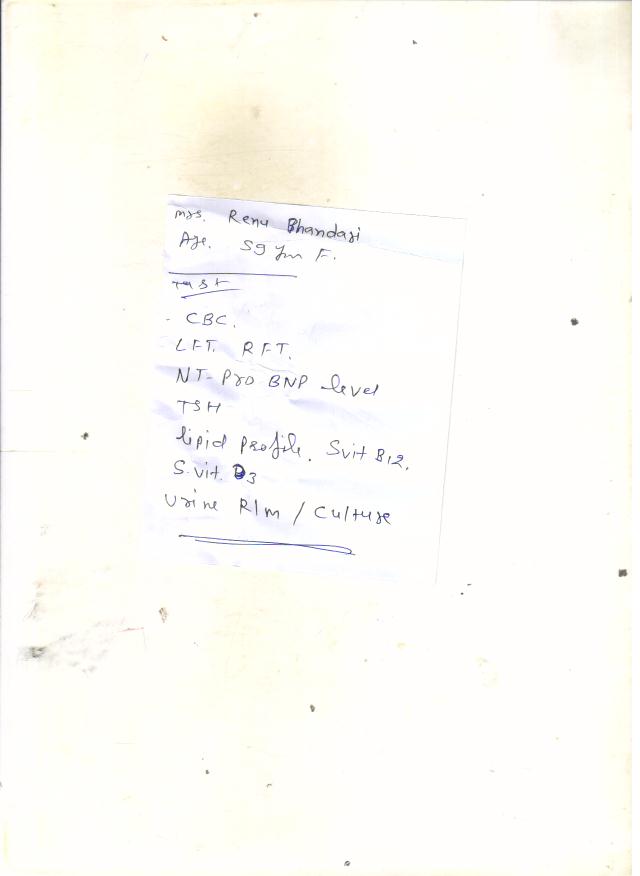 Mrs. Renu Bhandari
Age. 59 yrs F.
Test
- CBC.
LFT. RFT.
NT-Pro BNP level
TSH
lipid profile. S vit B12.
S. vit. D3
Urine R/m / Culture